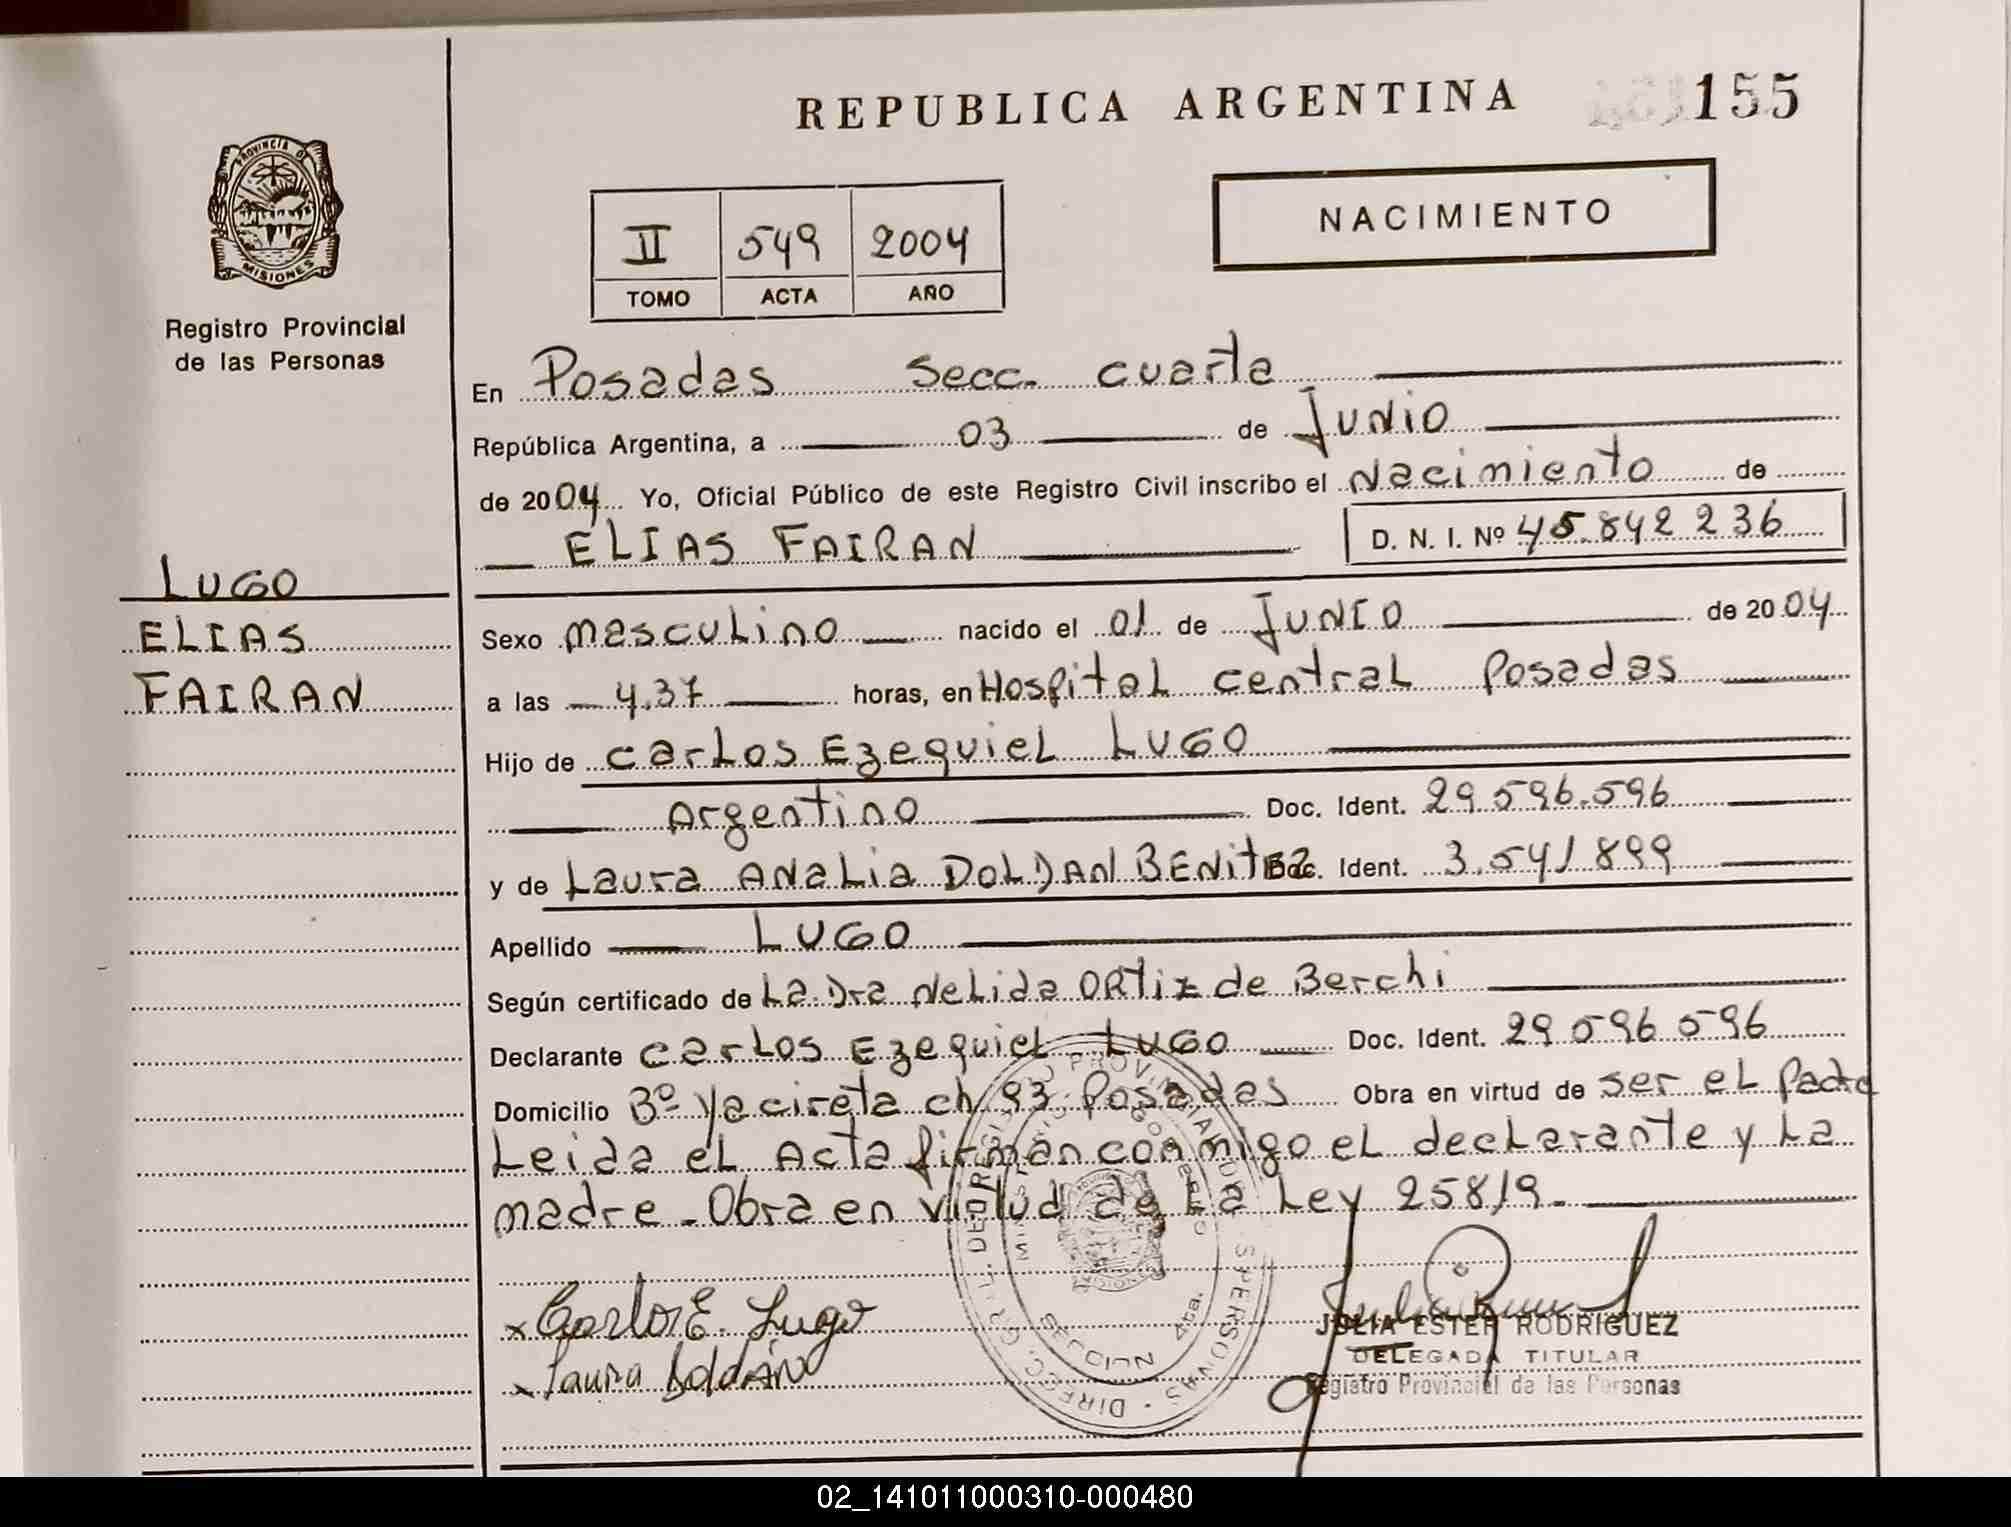 REPUBLICA ARGENTINA
155
PROVINCIA DE
MISIONES
Registro Provincial
de las Personas
II 549 2004
TOMO ACTA AÑO
NACIMIENTO
En Posadas Secc. cuarta
República Argentina, a 03 de Junio
de 2004 Yo, Oficial Público de este Registro Civil inscribo el Nacimiento de
ELIAS FAIRAN
D. N. I. Nº 45.842236
LUGO
ELIAS
FAIRAN
Sexo masculino nacido el 01 de Junio de 2004
a las 4,37 horas, en Hospital central Posadas
Hijo de Carlos Ezequiel LUGO
Argentino Doc. Ident. 29.596.596
y de Laura ANALIA DOLDAN BENitez Doc. Ident. 3.541899
Apellido LUGO
Según certificado de La Dra Nelida ORtiz de Berchi
Declarante Carlos Ezequiel LUGO Doc. Ident. 29596596
Domicilio Bº Yacireta ch 93 Posadas Obra en virtud de ser el Padre
Leida el Acta firman conmigo el declarante y La
madre - Obra en virtud de La Ley 25819-
x Carlos E. Lugo
x Laura Doldán
SECCION 4ta.
JULIA ESTER RODRIGUEZ
DELEGADA TITULAR
Registro Provincial de las Personas
02_141011000310-000480